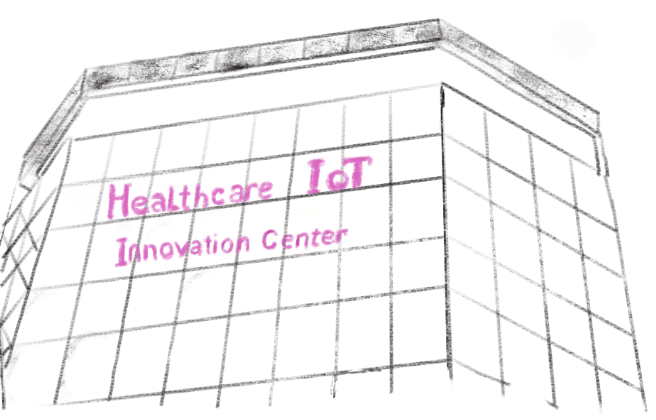 Healthcare IoT
Innovation Center